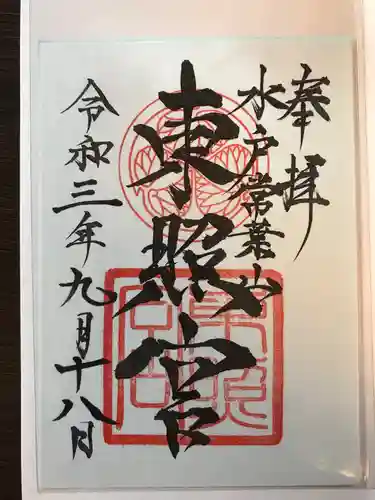 奉拝
水戸常葉山
東照宮
令和三年九月十八日